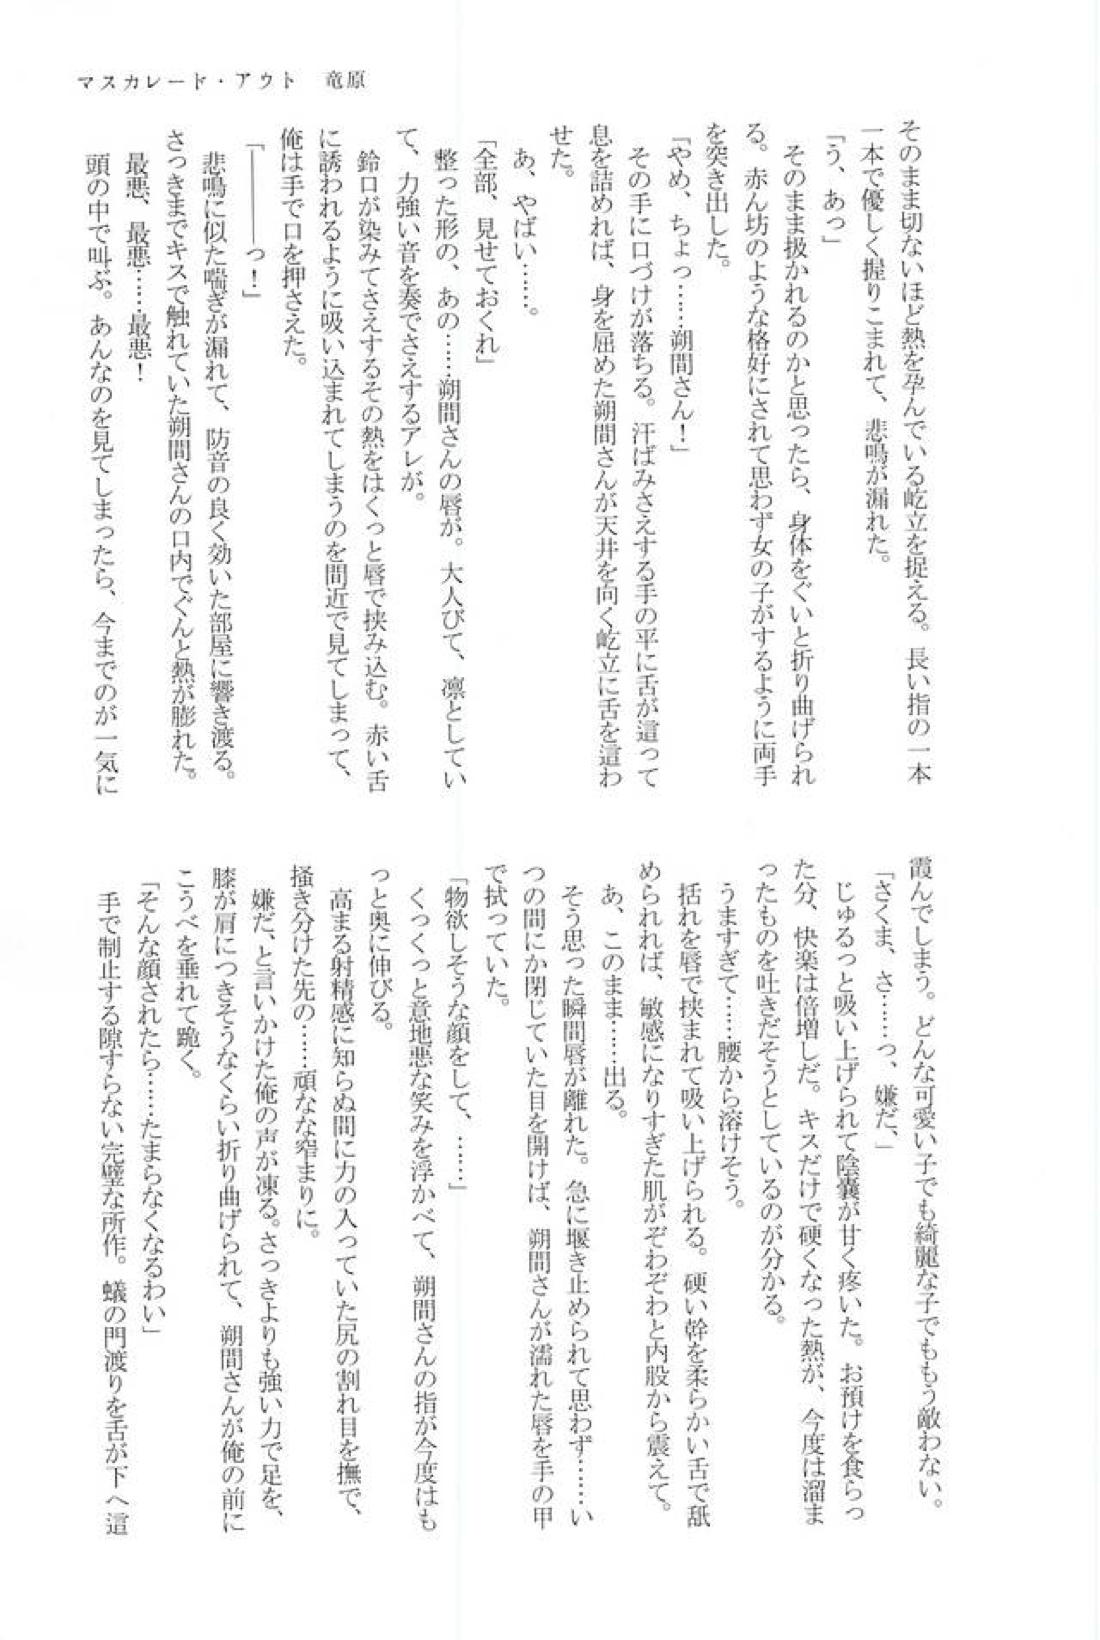 マスカレード・アウト　竜原
そのまま切ないほど熱を孕んでいる屹立を捉える。長い指の一本
一本で優しく握りこまれて、悲鳴が漏れた。
「う、あっ」
そのまま扱かれるのかと思ったら、身体をぐいと折り曲げられ
る。赤ん坊のような格好にされて思わず女の子がするように両手
を突き出した。
「やめ、ちょっ……朔間さん！」
その手に口づけが落ちる。汗ばみさえする手の平に舌が這って
息を詰めれば、身を屈めた朔間さんが天井を向く屹立に舌を這わ
せた。
あ、やばい……。
「全部、見せておくれ」
整った形の、あの……朔間さんの唇が。大人びて、凛としてい
て、力強い音を奏でさえするアレが。
鈴口が染みてさえするその熱をはくっと唇で挟み込む。赤い舌
に誘われるように吸い込まれてしまうのを間近で見てしまって、
俺は手で口を押さえた。
「――――っ！」
悲鳴に似た喘ぎが漏れて、防音の良く効いた部屋に響き渡る。
さっきまでキスで触れていた朔間さんの口内でぐんと熱が膨れた。
最悪、最悪……最悪！
頭の中で叫ぶ。あんなのを見てしまったら、今までのが一気に
霞んでしまう。どんな可愛い子でも綺麗な子でももう敵わない。
「さくま、さ……っ、嫌だ、」
じゅるっと吸い上げられて陰嚢が甘く疼いた。お預けを食らっ
た分、快楽は倍増しだ。キスだけで硬くなった熱が、今度は溜ま
ったものを吐きだそうとしているのが分かる。
うますぎて……腰から溶けそう。
括れを唇で挟まれて吸い上げられる。硬い幹を柔らかい舌で舐
められれば、敏感になりすぎた肌がぞわぞわと内股から震えて。
あ、このまま……出る。
そう思った瞬間唇が離れた。急に堰き止められて思わず……い
つの間にか閉じていた目を開けば、朔間さんが濡れた唇を手の甲
で拭っていた。
「物欲しそうな顔をして、……」
くっくっと意地悪な笑みを浮かべて、朔間さんの指が今度はも
っと奥に伸びる。
高まる射精感に知らぬ間に力の入っていた尻の割れ目を撫で、
掻き分けた先の……頑なな窄まりに。
嫌だ、と言いかけた俺の声が凍る。さっきよりも強い力で足を、
膝が肩につきそうなくらい折り曲げられて、朔間さんが俺の前に
こうべを垂れて跪く。
「そんな顔されたら……たまらなくなるわい」
手で制止する隙すらない完璧な所作。蟻の門渡りを舌が下へ這